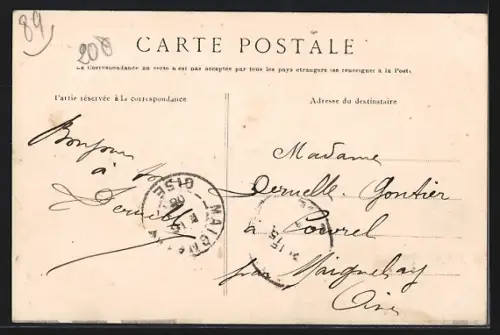 89
208
CARTE POSTALE
La Correspondance au recto n'est pas acceptée par tous les pays étrangers (se renseigner à la Poste
Partie réservée à la correspondance
Adresse du destinataire
Bonjour
à
Madame
Gontier
à
par Maignelay
Oise
MAIGNELAY
OISE